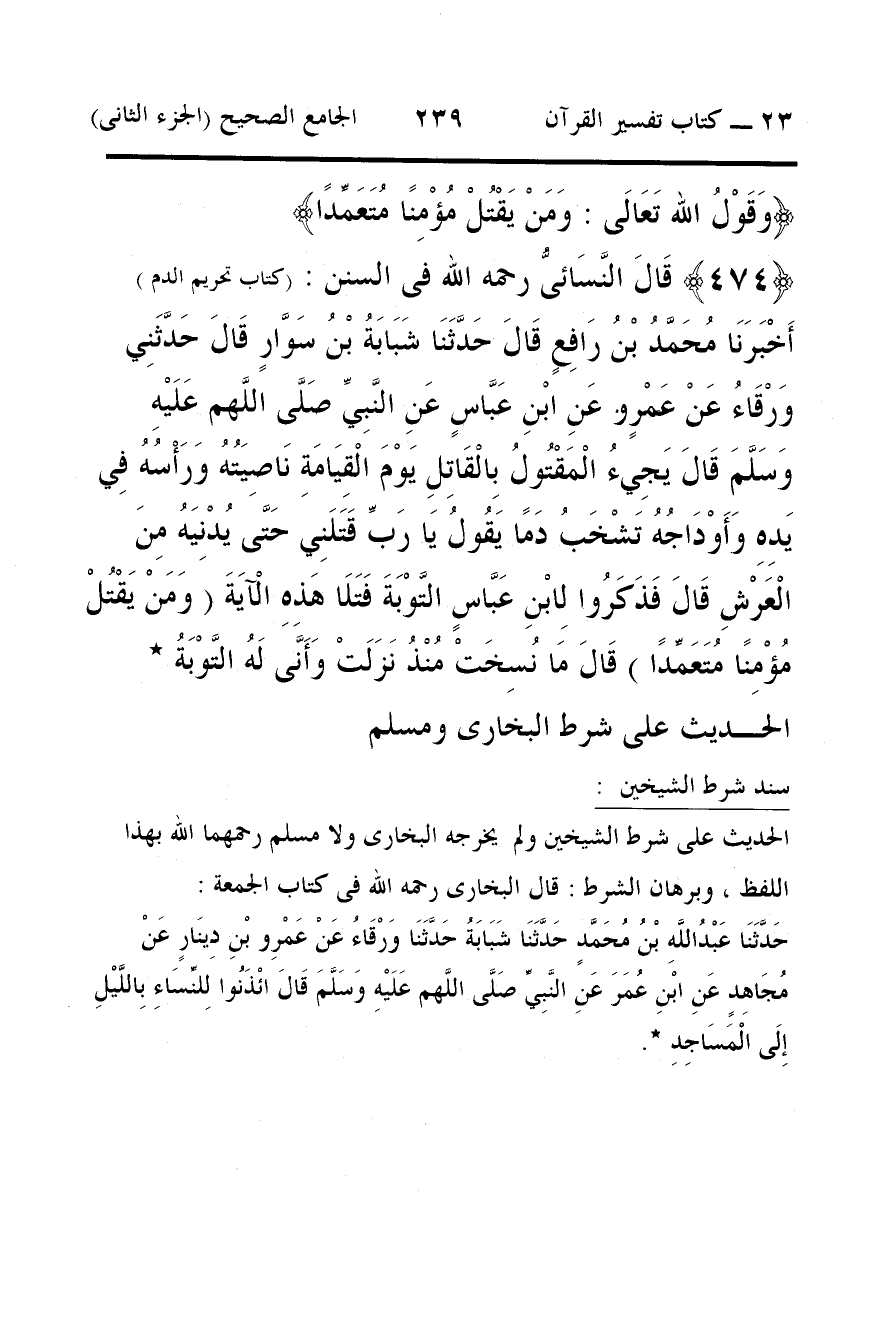 ٢٣ ــ كتاب تفسير القرآن ٢٣٩ الجامع الصحيح (الجزء الثانى)
﴿وَقَوْلُ الله تَعَالَى : وَمَنْ يَقْتُلْ مُؤْمِنًا مُتَعَمِّدًا﴾
﴿٤٧٤﴾ قَالَ النَّسَائىُّ رحمه الله فى السنن : (كتاب تحريم الدم )
أَخْبَرَنَا مُحَمَّدُ بْنُ رَافِعٍ قَالَ حَدَّثَنَا شَبَابَةُ بْنُ سَوَّارٍ قَالَ حَدَّثَنِي
وَرْقَاءُ عَنْ عَمْرٍو عَنِ ابْنِ عَبَّاسٍ عَنِ النَّبِيِّ صَلَّى اللهم عَلَيْهِ
وَسَلَّمَ قَالَ يَجِيءُ الْمَقْتُولُ بِالْقَاتِلِ يَوْمَ الْقِيَامَةِ نَاصِيَتُهُ وَرَأْسُهُ فِي
يَدِهِ وَأَوْدَاجُهُ تَشْخَبُ دَمًا يَقُولُ يَا رَبِّ قَتَلَنِي حَتَّى يُدْنِيَهُ مِنَ
الْعَرْشِ قَالَ فَذَكَرُوا لِابْنِ عَبَّاسٍ التَّوْبَةَ فَتَلَا هَذِهِ الْآيَةَ ( وَمَنْ يَقْتُلْ
مُؤْمِنًا مُتَعَمِّدًا ) قَالَ مَا نُسِخَتْ مُنْذُ نَزَلَتْ وَأَنَّى لَهُ التَّوْبَةُ *
الحــديث على شرط البخارى ومسلم
سند شرط الشيخين :
الحديث على شرط الشيخين ولم يخرجه البخارى ولا مسلم رحمهما الله بهذا
اللفظ ، وبرهان الشرط : قال البخارى رحمه الله فى كتاب الجمعة :
حَدَّثَنَا عَبْدُاللَّهِ بْنُ مُحَمَّدٍ حَدَّثَنَا شَبَابَةُ حَدَّثَنَا وَرْقَاءُ عَنْ عَمْرِو بْنِ دِينَارٍ عَنْ
مُجَاهِدٍ عَنِ ابْنِ عُمَرَ عَنِ النَّبِيِّ صَلَّى اللهم عَلَيْهِ وَسَلَّمَ قَالَ ائْذَنُوا لِلنِّسَاءِ بِاللَّيْلِ
إِلَى الْمَسَاجِدِ *.